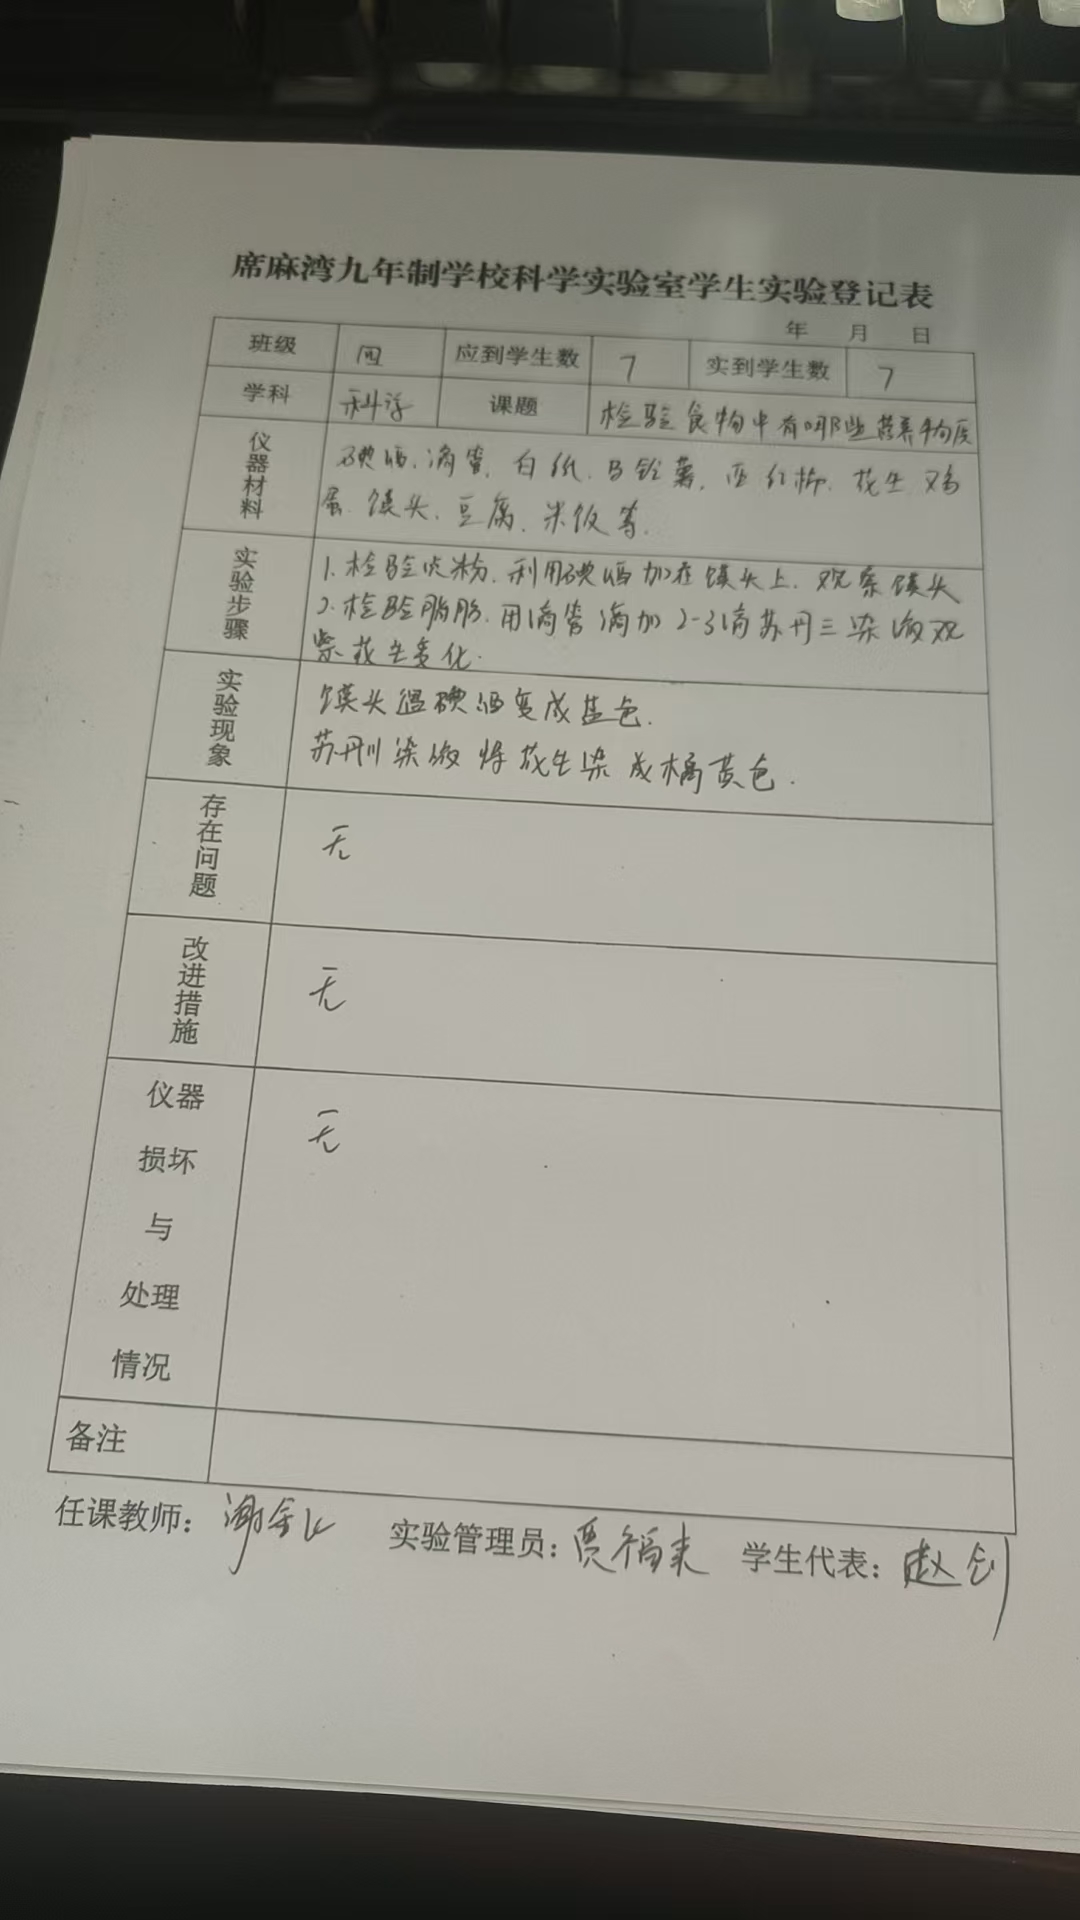 席麻湾九年制学校科学实验室学生实验登记表
年 月 日
班级 四 应到学生数 7 实到学生数 7
学科 科学 课题 检验食物中有哪些营养物质
仪器材料 碘酒、滴管、白纸、马铃薯、西红柿、花生、鸡
蛋、馒头、豆腐、米饭等.
实验步骤 1.检验淀粉.利用碘酒加在馒头上.观察馒头
2.检验脂肪.用滴管滴加2-3滴苏丹三染液观
察花生变化.
实验现象 馒头遇碘酒变成蓝色.
苏丹III染液将花生染成橘黄色.
存在问题 无
改进措施 无
仪器
损坏
与
处理
情况
无
备注
任课教师: 谢 实验管理员: 贾福来 学生代表: 赵剑